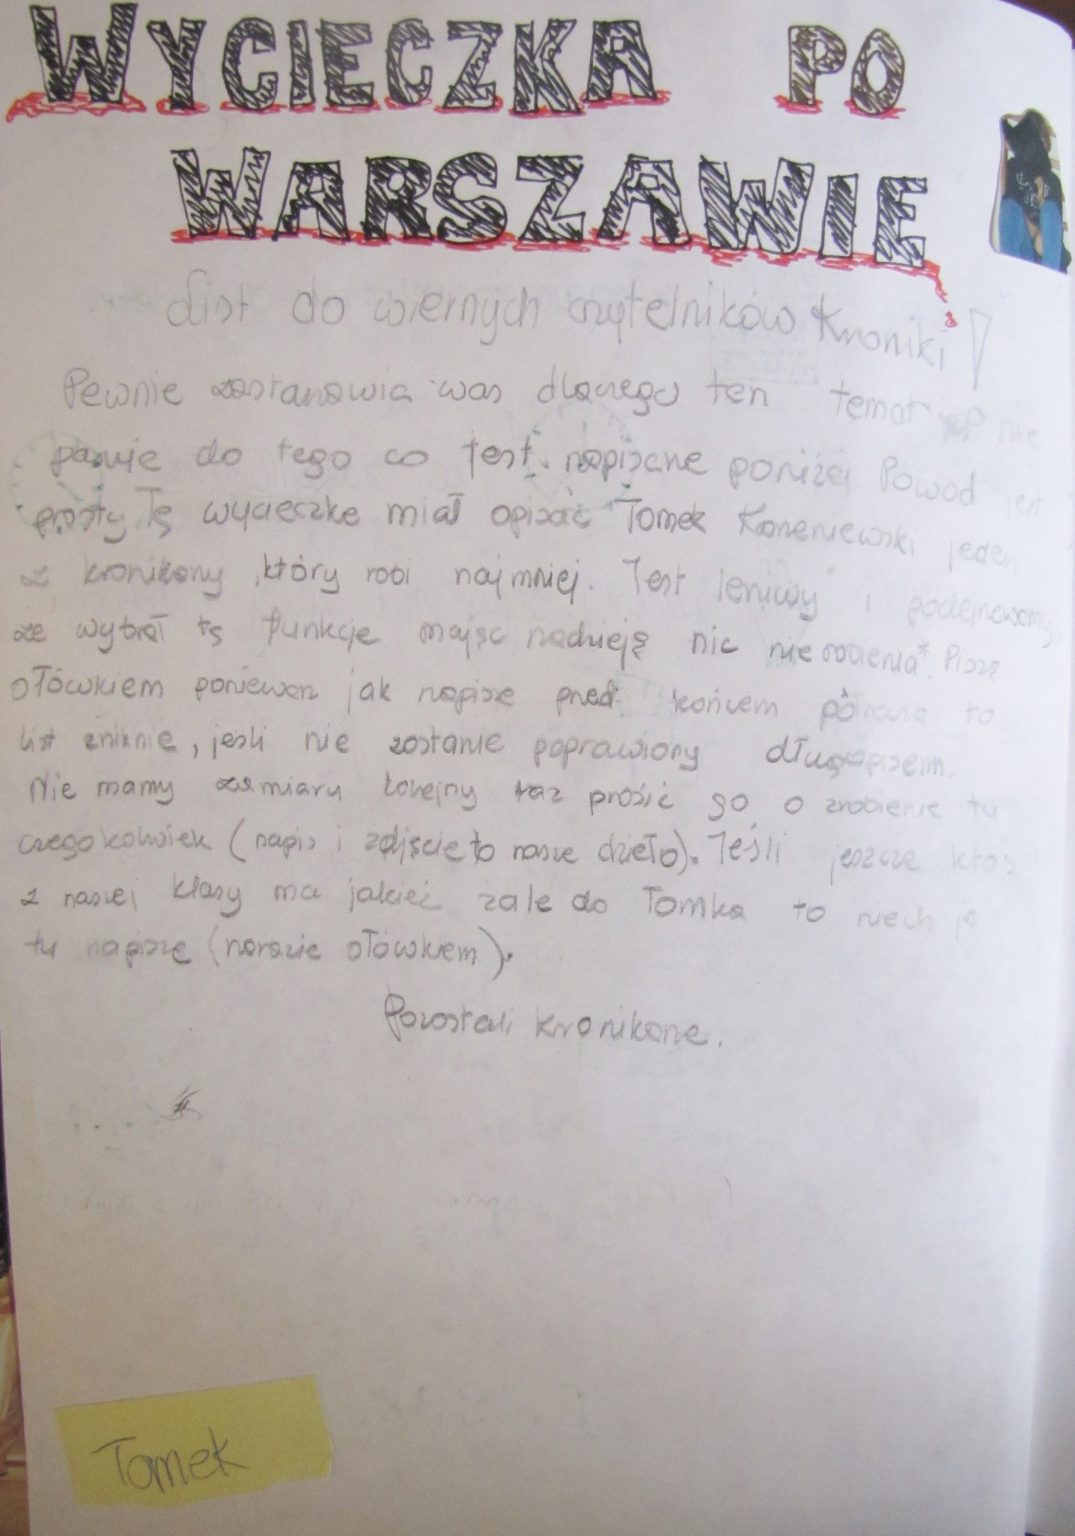 WYCIECZKA PO
WARSZAWIE
List do wiernych czytelników kroniki!
Pewnie zastanawia was dlaczego ten temat nie
pasuje do tego co jest napisane poniżej Powód jest
prosty Tę wycieczkę miał opisać Tomek jeden
z kronikarzy, który robi najmniej. Jest leniwy i podejrzewamy
że wybrał tę funkcje mając nadzieję nic nie robienia*. Piszę
ołówkiem ponieważ jak napisze przed końcem półrocza to
list zniknie, jeśli nie zostanie poprawiony długopisem.
Nie mamy zamiaru kolejny raz prosić go o zrobienie tu
czegokolwiek (napis i zdjęcie to nasze dzieło). Jeśli jeszcze ktoś
z naszej klasy ma jakieś żale do Tomka to niech je
tu napiszę (narazie ołówkiem).
Pozostali kronikarze.
Tomek